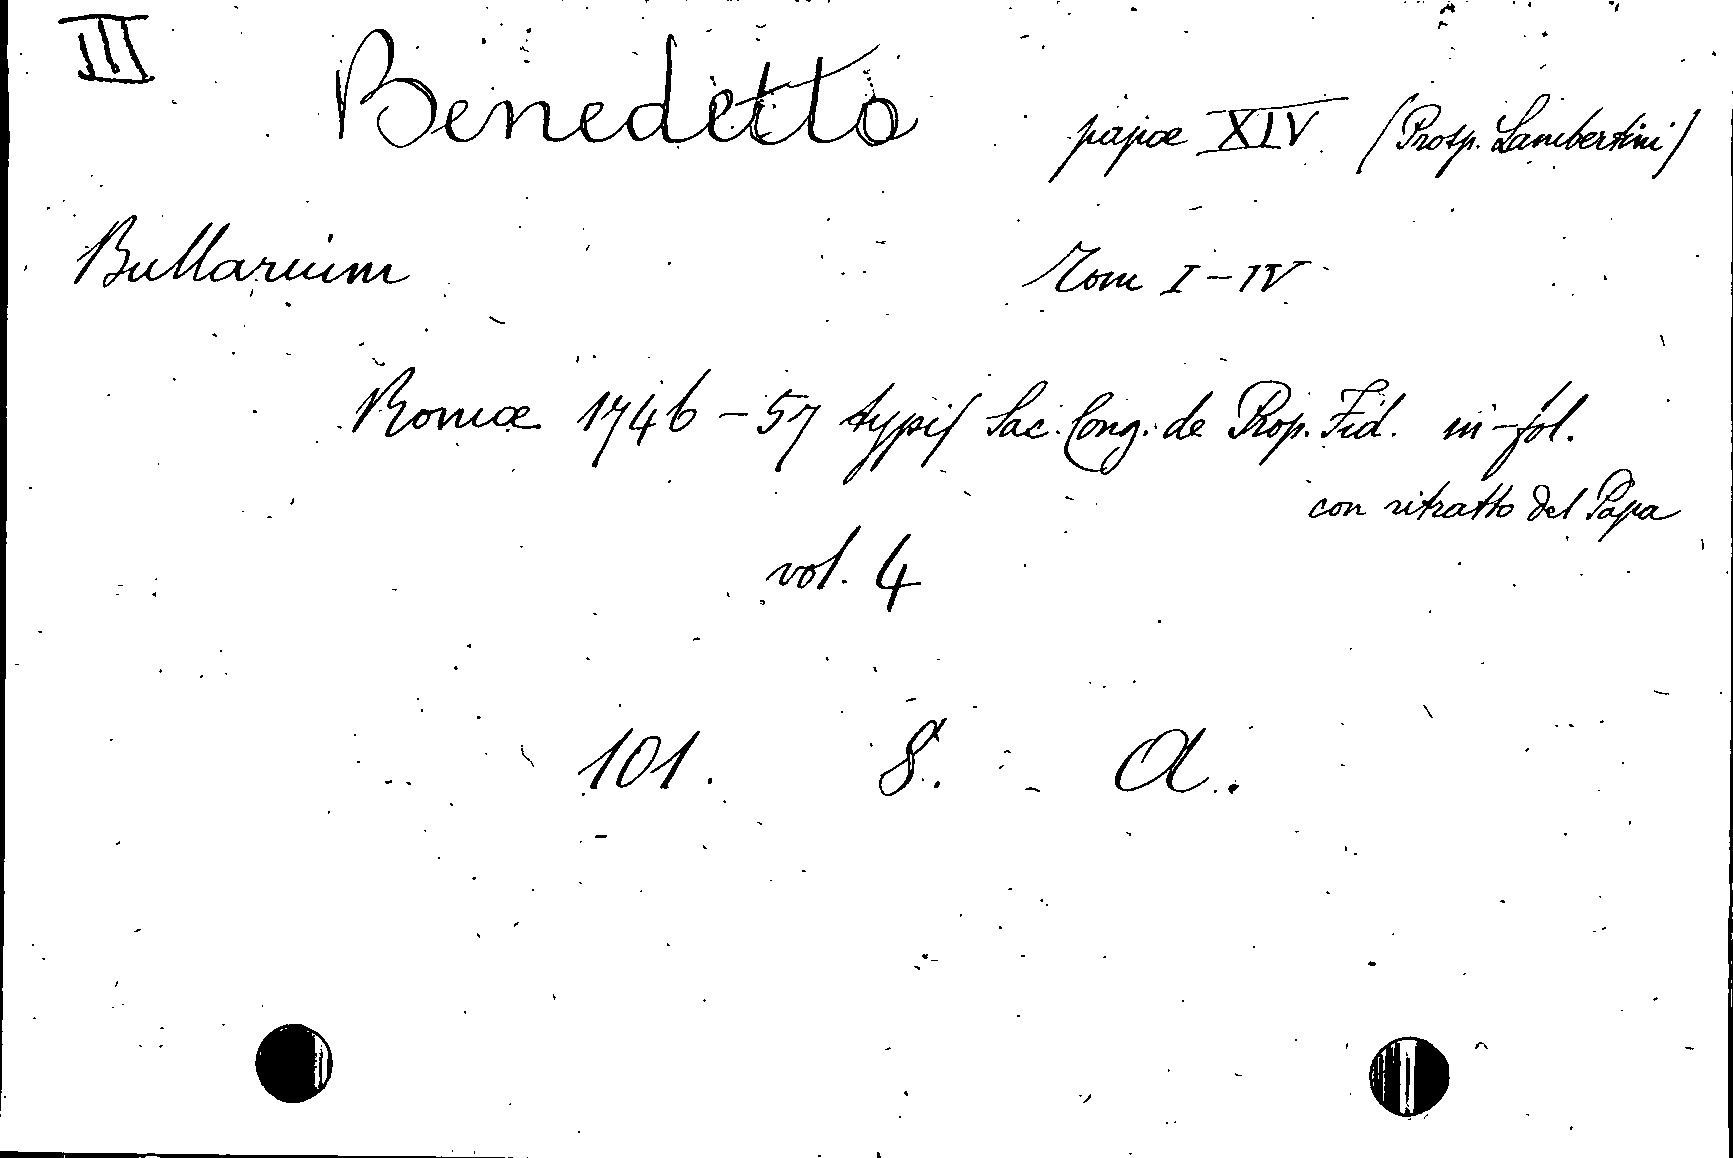 III
Benedetto papæ XIV (Prosp. Lambertini)
Bullarium Tom I-IV
Romæ 1746-57 typis Sac. Cong. de Prop. Fid. in-fol.
con ritratto del Papa
vol. 4
101. 8. A.